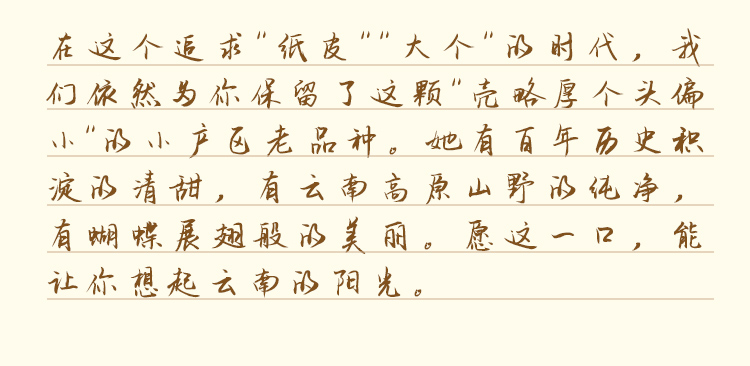 在这个追求"纸皮""大个"的时代，我
们依然为你保留了这颗"壳略厚个头偏
小"的小产区老品种。她有百年历史积
淀的清甜，有云南高原山野的纯净，
有蝴蝶展翅般的美丽。愿这一口，能
让你想起云南的阳光。